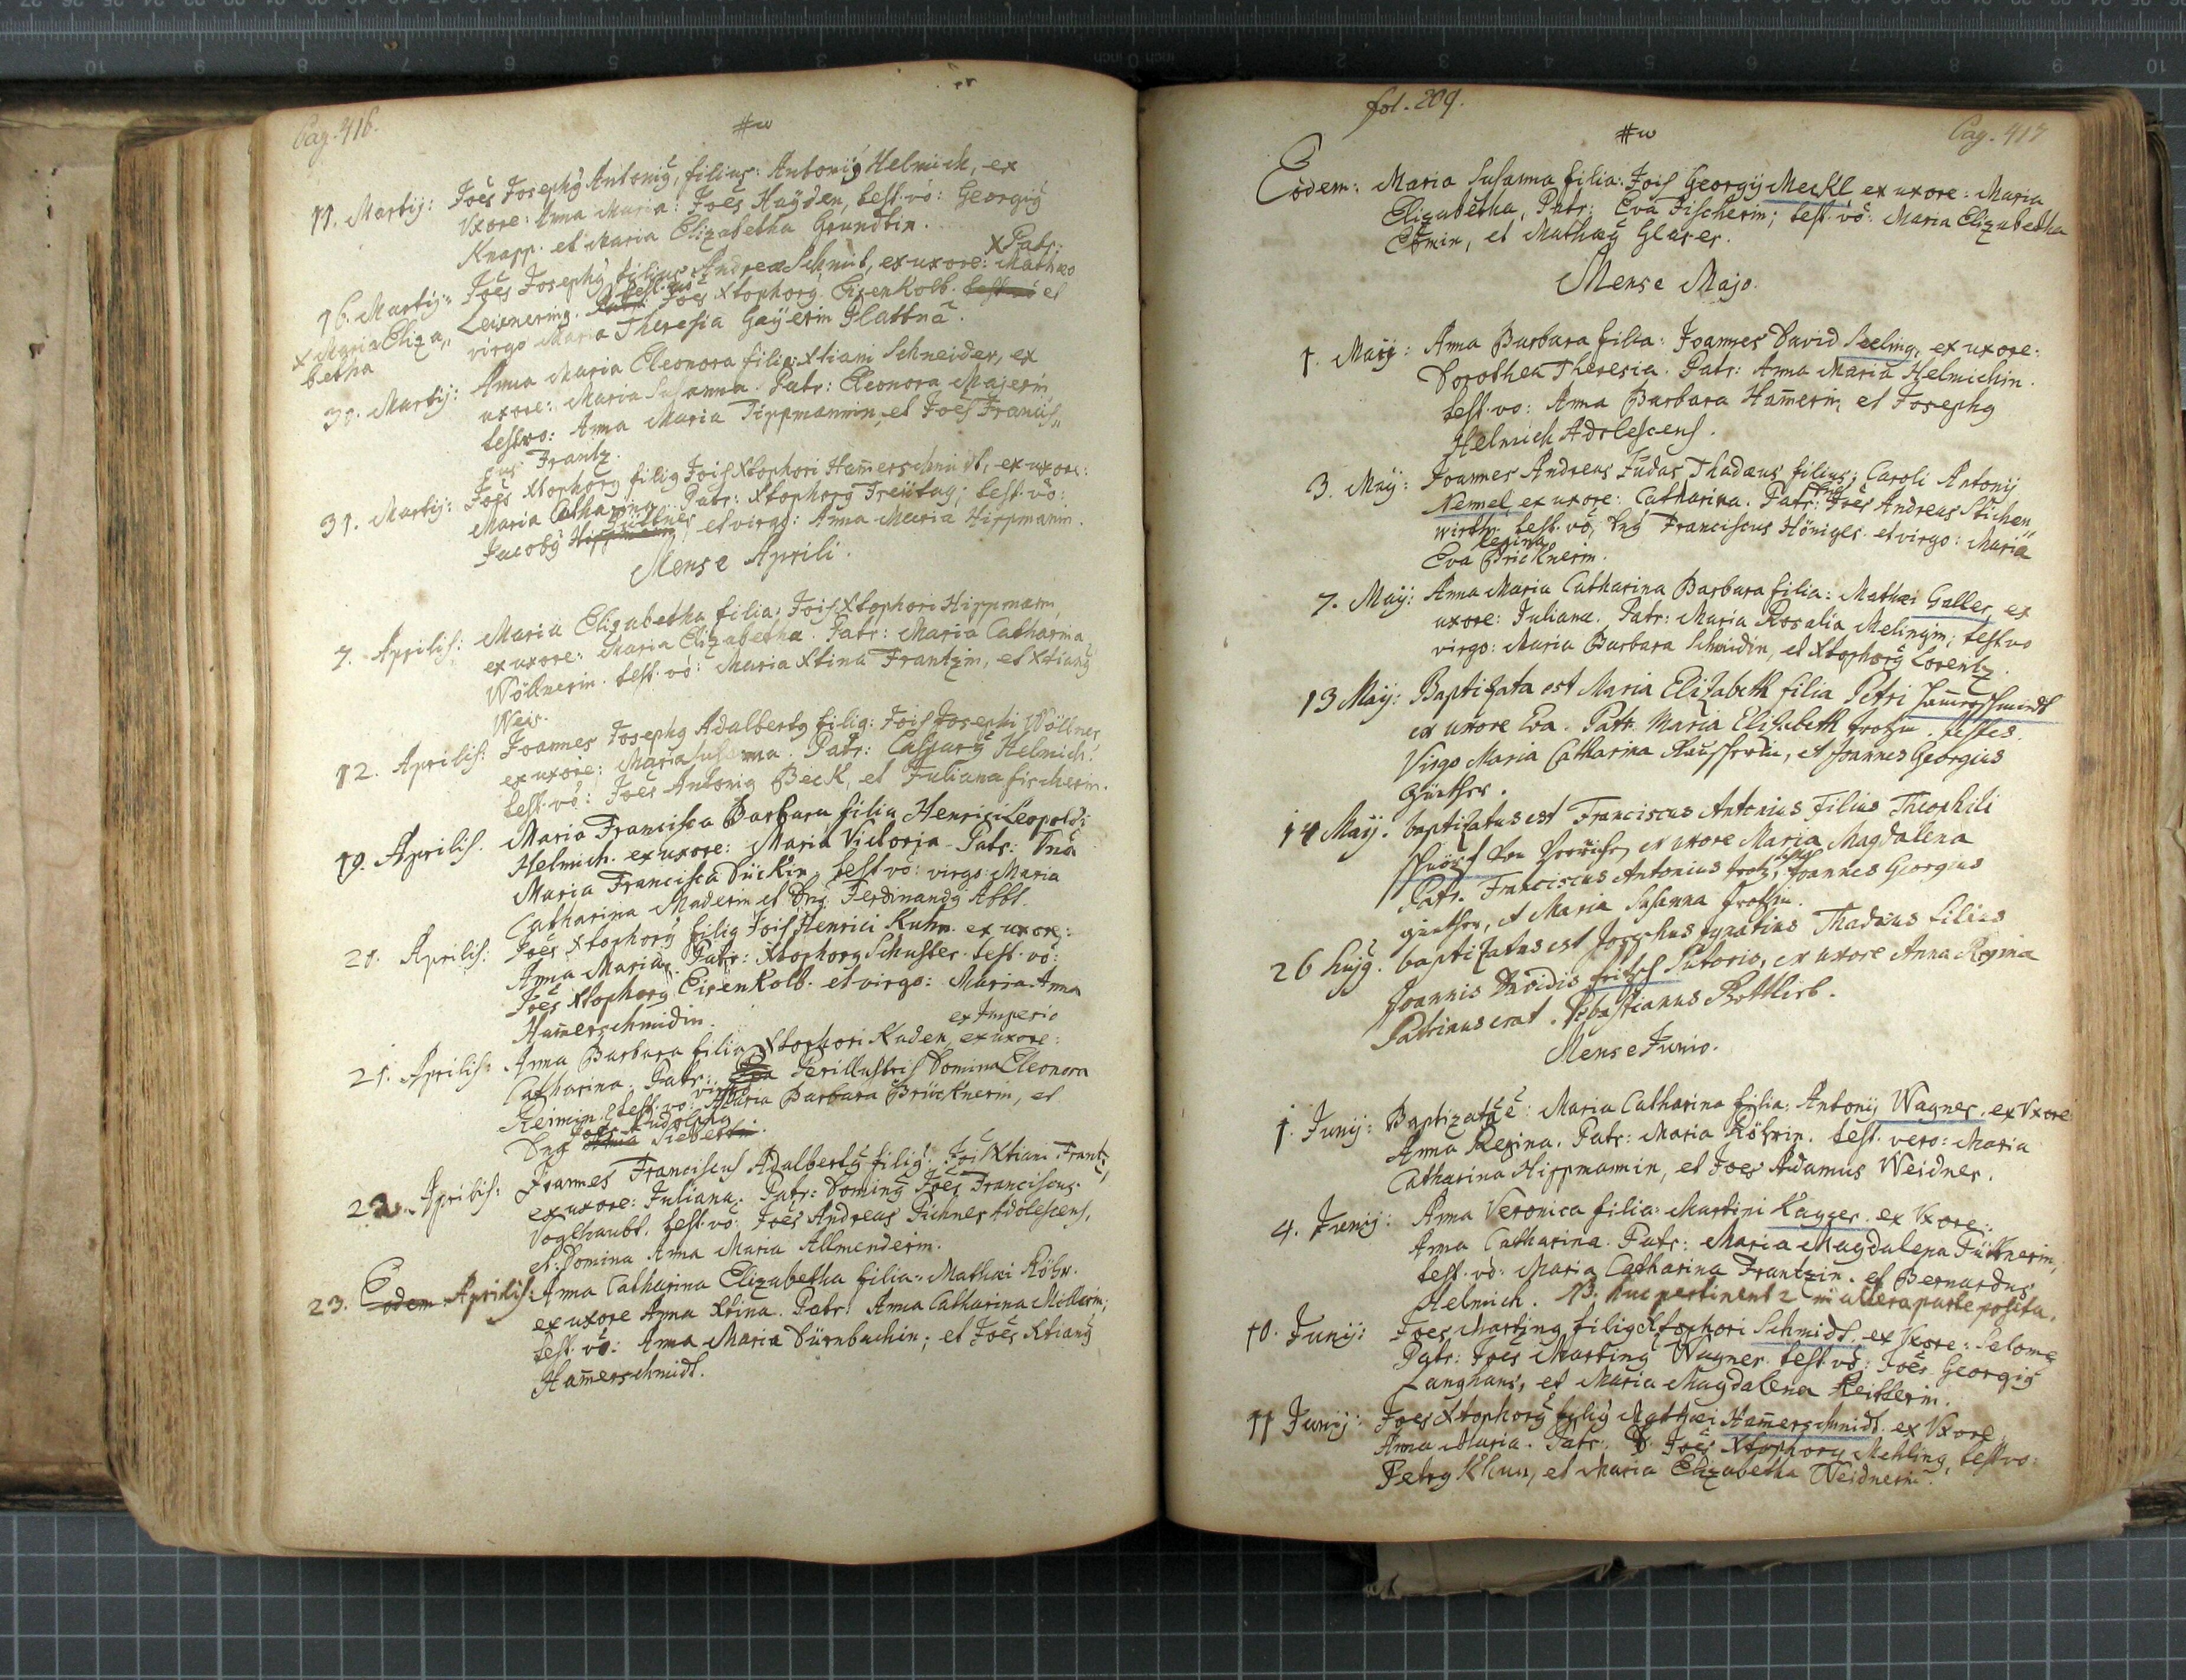 Pag. 416.
#w
11. Martij: Joẽs Josephg Antonig, filius: Antonij Helmich, ex
Vxore: Anna Maria: Joẽs Hayden, test. vo: Georgig
Knapp. et Maria Elizabetha Grundtin.
16. Martij: Joẽs Josephg filius Andreæ Schmit, ex uxore: Mathæo
X Patr:
X Maria Eliza„
betha
Leixnering. test. vo Joẽs Xtophorg Eisenkolb. et
virgo Maria Theresia Gayerin
30. Martij: Anna Maria Eleonora filia: Xtiani Schneider, ex
uxore: Maria Susanna. Patr: Eleonora Majerin
test. vo: Anna Maria Tippmannin, et Joẽs Francis„
cus Frantz.
31. Martij: Joẽs Xtophorg filig Jois Xtophori Ham̃erschmidt, ex uxore:
Maria Catharina. Patr: Xtophorg Freütag; test. vo:
Jacobg Hippmann, et virgo: Anna Maria Hippmanin.
Mense Aprili.
7. Aprilis: Maria Elizabetha filia: Jois Xtophori Hippmann,
ex uxore: Maria Elizabetha. Patr: Maria Catharina
Wöllnerin. test. vo: Maria Xtina Frantzin, et Xtiang
Weis.
12. Aprilis: Joannes Josephg Adalbertg filig: Jois Josephi Wöllner
ex uxore: Maria Susanna. Patr: Casparg Helmich.
test. vo: Joẽs Antonig Beck, et Juliana fischerin.
19. Aprilis. Maria Francisca Barbara filia Henrici Leopoldi
Helmich. ex uxore: Maria Victoria. Patr: Dña
Maria Francisca Dückin, test. vo: virgo Maria
Catharina Maderin et Dng Ferdinandg Abbt.
20. Aprilis: Joẽs Xtophorg filig Jois Henrici Kuhn. ex uxore:
Anna Maria. Patr: Xtophorg Schuster. test. vo:
Joẽs Xtophorg Eisenkolb. et virgo: Maria Anna
Ham̃erschmidin.
ex Imperio
21. Aprilis: Anna Barbara filia Xtophori Kaden, ex uxore:
Catharina. Patr: Perillustris Domina Eleonora
Reimin. test. vo: virgo Maria Barbara Brücknerin, et
Dng Joẽs Rudolphg Siebert.
22. Aprilis: Joannes Franciscus Adalbertg filig: Jois Xtiani Frantz,
ex uxore: Juliana. Patr: Doming Joẽs Franciscus
Voglhaubt. test. vo: Joẽs Andreas Pichner Adolescens,
et Domina Anna Maria Allmenderin.
23. Eodem Aprilis: Anna Catharina Elizabetha filia: Mathæi Röhr.
ex uxore Anna Xtina. Patr: Anna Catharina Müllerin;
test. vo: Anna Maria Dürnbachin; et Joẽs Xtiang
Ham̃erschmidt.
fol. 209.
#w
Pag. 417
Eodem: Maria Susanna filia: Jois Georgij Meckl ex uxore: Maria
Elizabetha, Patr: Eva Fischerin; test. vo: Maria Elizabetha
et Mathæg Glaser.
Mense Majo.
1. Maij: Anna Barbara filia: Joannes David Seeling, ex uxore:
Dorothea Theresia. Patr: Anna Maria Helmichin.
test. vo: Anna Barbara Ham̃erin, et Josephg
Helmich Adolescens.
3. Maij: Joannes Andreas Judas Thadæus filius: Caroli Antonij
Nemmel, ex uxore: Catharina. Patr: Dng Joẽs Andreas Stichen„
wirth. test. vo, Dng Franciscus Höniger. et virgo: Maria
Eva Regina Bricknerin.
7. Maij: Anna Maria Catharina Barbara filia: Mathæi Galler, ex
uxore: Juliana. Patr: Maria Rosalia Melingin; test. vo
virgo: Maria Barbara Schmidin, et Xtophorg Lorentz.
13 Maij: Baptizata est Maria Elizabeth filia Petri Ham̃erschmidt
ex uxore Eva. Patr. Maria Elizabeth . testes.
Virgo Maria Catharina , et Joannes Georgius
Günther.
14 Maij. baptizatus est Franciscus Antonius filius Theophili
ex uxore Maria Magdalena
Patr. Franciscus Antonius , testes Joannes Georgius
günther, et Maria Susanna .
26 hujg. baptizatus est Josephus Ignatius Thadæus filius
Joannis Davidis fritsch Sutoris, ex uxore Anna Regina
Patrinus erat. Sebastianus Gottlieb.
Mense Junio.
1. Junij: Baptizata ẽ: Maria Catharina filia: Antonij Wagner, ex Vxore
Anna Regina. Patr: Maria Röhrin. test. vero: Maria
Catharina Hippmannin, et Joes Adamus Weidner.
4. Junij: Anna Veronica filia: Martini Kagger. ex Vxore:
Anna Catharina. Patr: Maria Magdalena Füttnerin,
test. vo: Maria Catharina Frantzin. et Bernardus
Helmich. NB. huc pertinent 2 in altera parte posita.
10. Junij: Joes Marting filig Xtophori Schmidt. ex Vxore: Selome
Patr: Joẽs Marting Wagner. test. vo: Joẽs Georgig
Langhans, et Maria Magdalena Reitterin.
11 Junij: Joes Xtophorg filig Mathæi Ham̃erschmidt. ex Vxore.
Anna Maria. Patr. D. Joẽs Xtophorg Mehling, test vo:
Petrg Khun, et Maria Elizabetha Weidnerin.